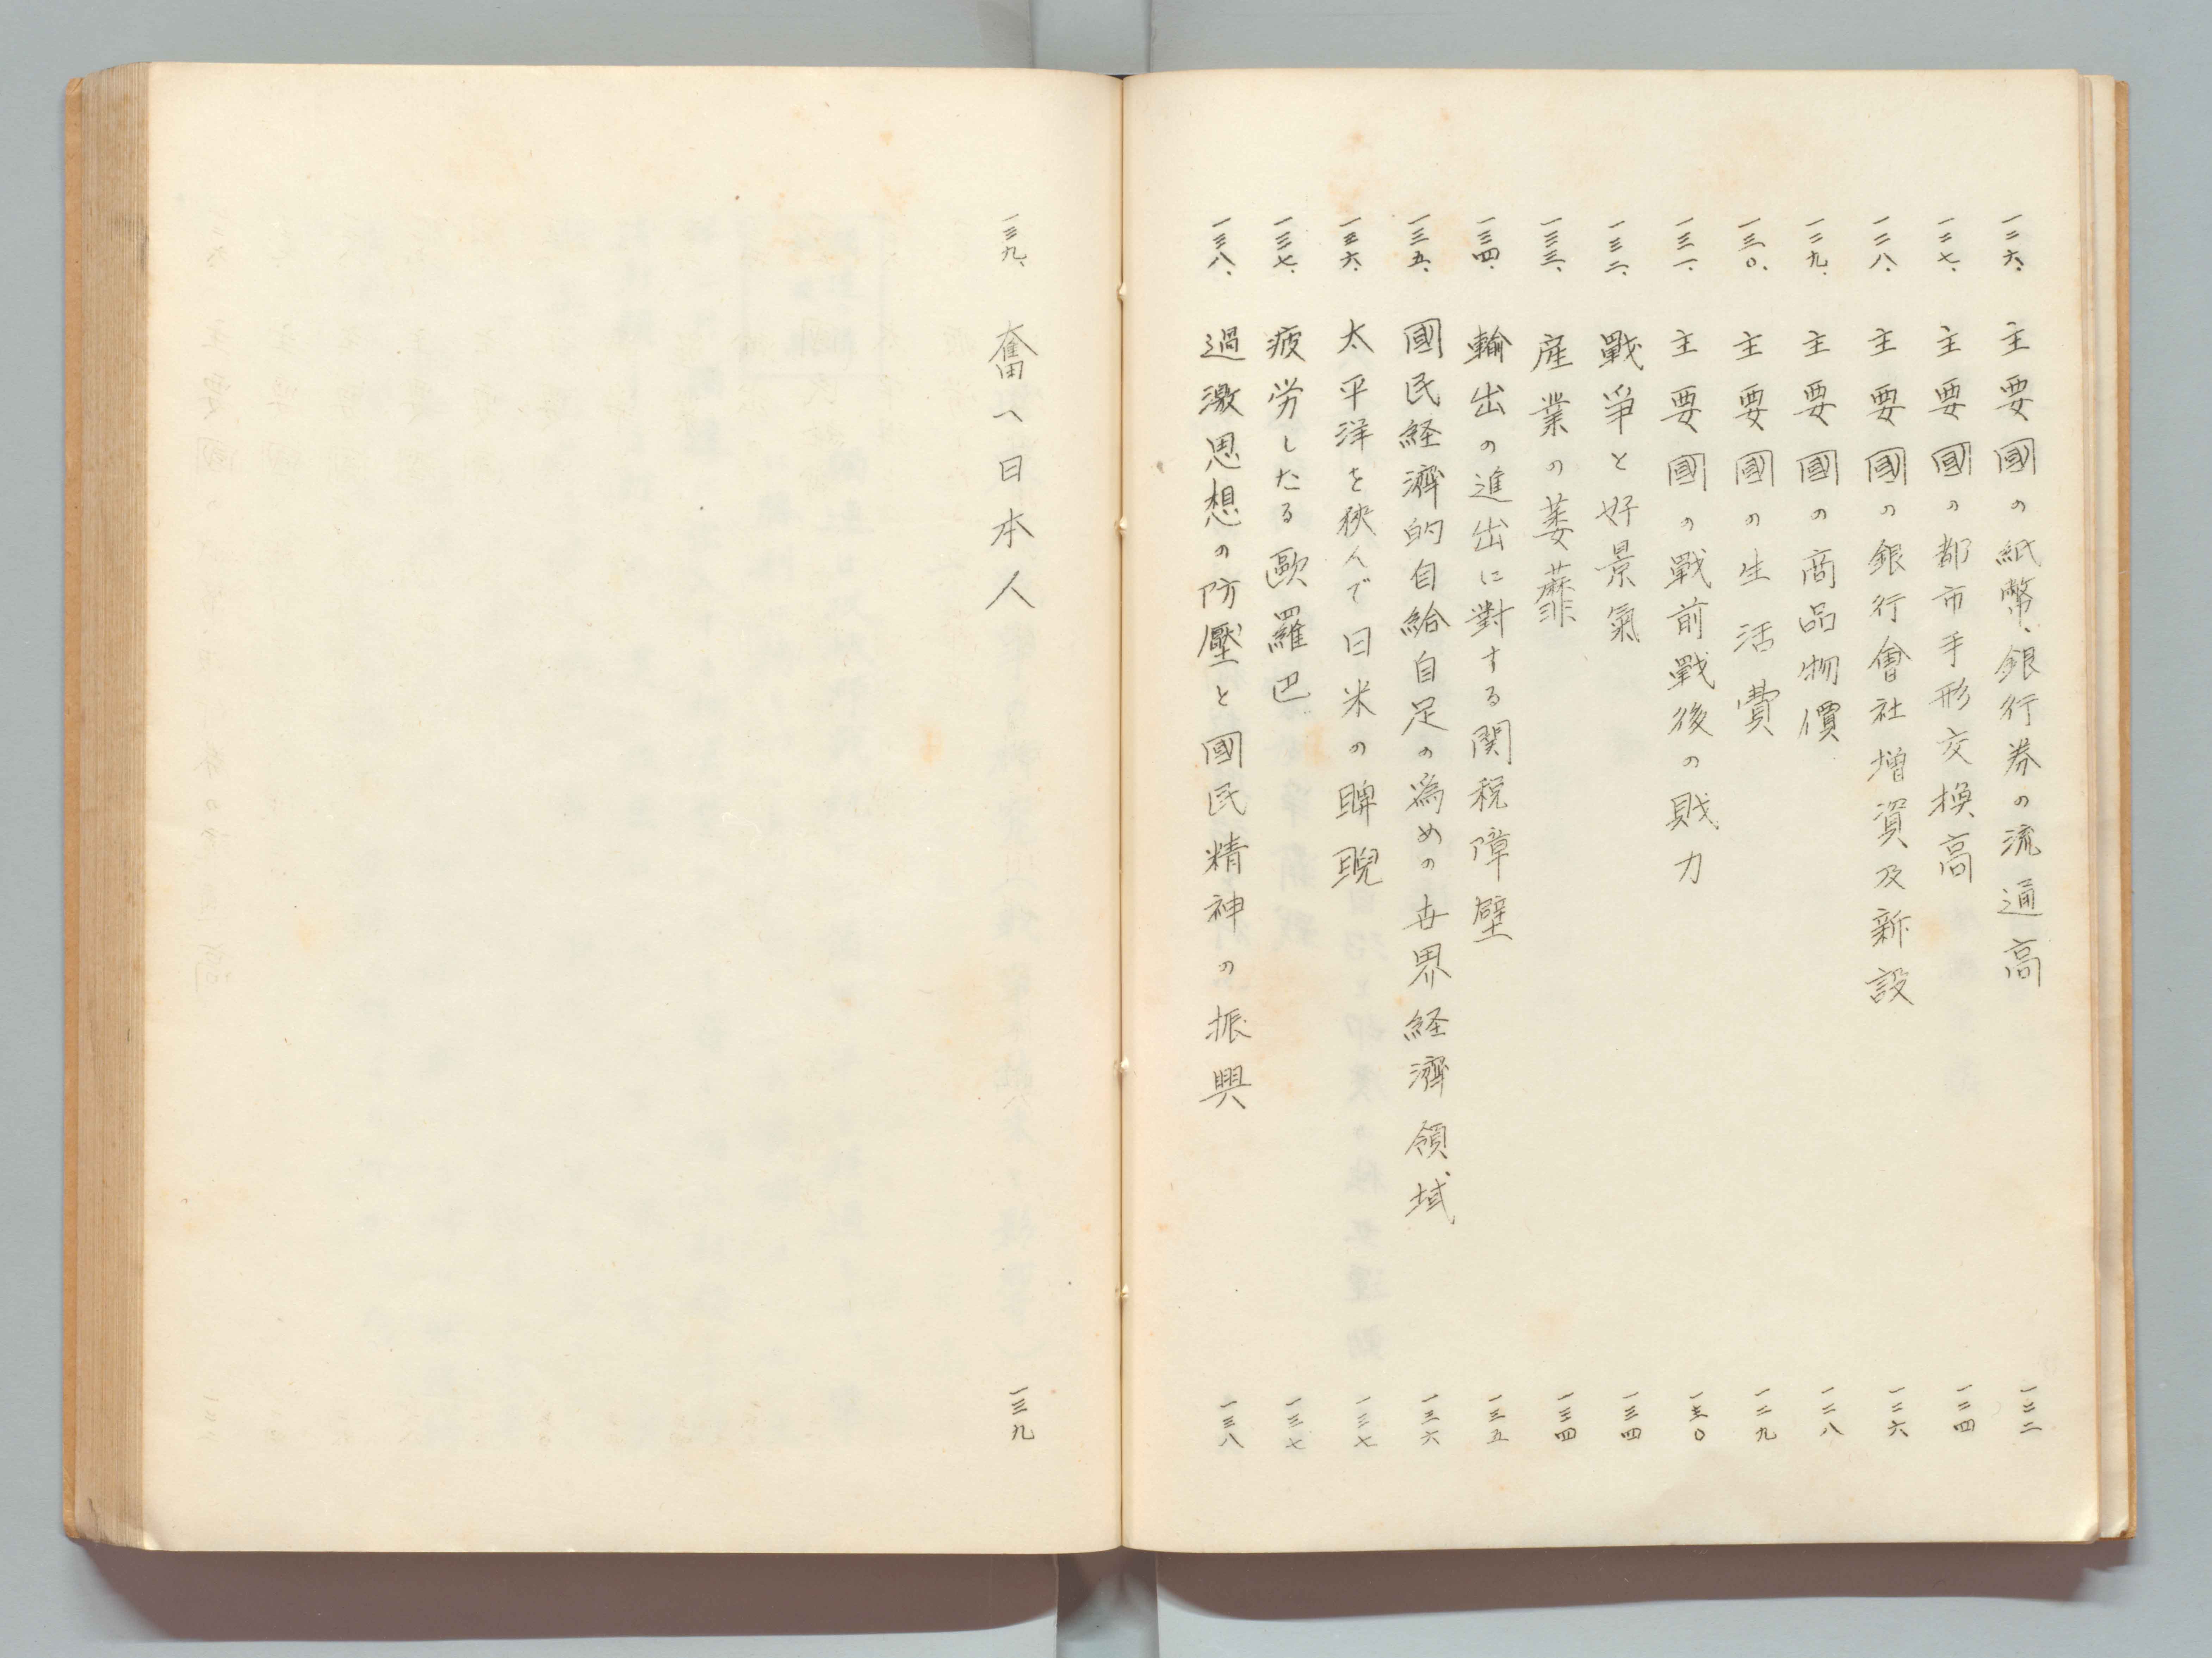 一二六、主要國の紙幣、銀行券の流通高 一二二
一二七、主要國の都市手形交換高 一二四
一二八、主要國の銀行會社増資及新設 一二六
一二九、主要國の商品物價 一二八
一三〇、主要國の生活費 一二九
一三一、主要國の戰前戰後の戝力 一三〇
一三二、戰爭と好景氣 一三四
一三三、産業の萎靡 一三四
一三四、輸出の進出に對する関税障壁 一三五
一三五、國民経濟的自給自足の爲めの世界経濟領域 一三六
一三六、太平洋を狹んで日米の睥睨 一三七
一三七、疲労したる歐羅巴 一三七
一三八、過激思想の防壓と國民精神の振興 一三八
一三九、奮へ日本人 一三九